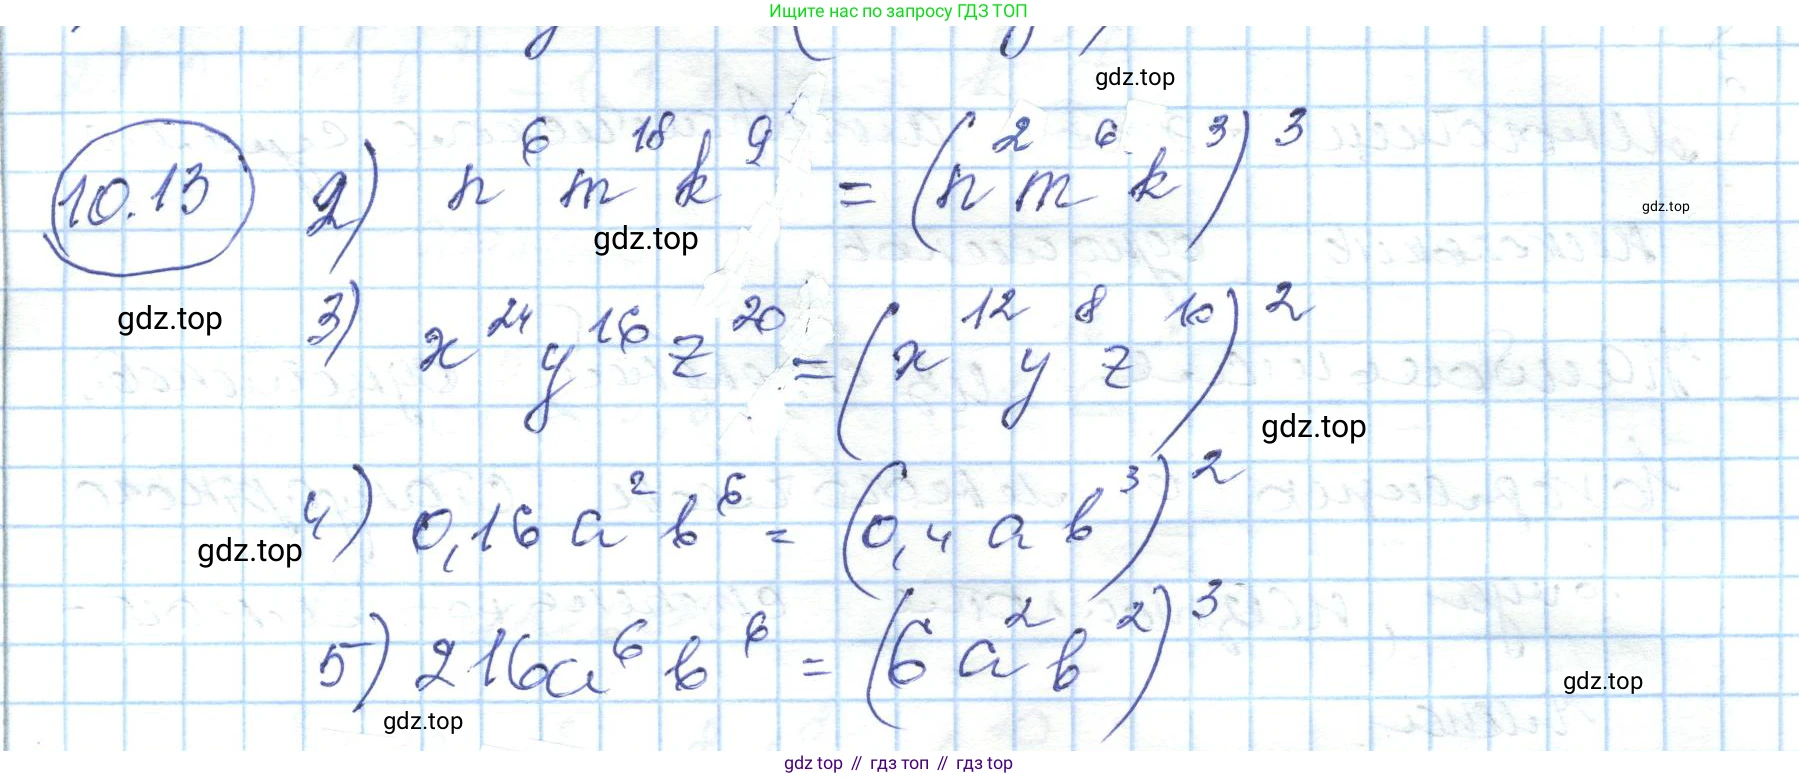 Ищите нас по запросу ГДЗ ТОП
gdz.top
10.13 2) n⁶ m¹⁸ k⁹ = (n² m⁶ k³)³
gdz.top
gdz.top
gdz.top
3) x²⁴ y¹⁶ z²⁰ = (x¹² y⁸ z¹⁰)²
gdz.top
4) 0,16 a² b⁶ = (0,4 a b³)²
gdz.top
5) 216a⁶ b⁶ = (6 a² b²)³
gdz.top
gdz.top
gdz top // гдз топ // gdz top